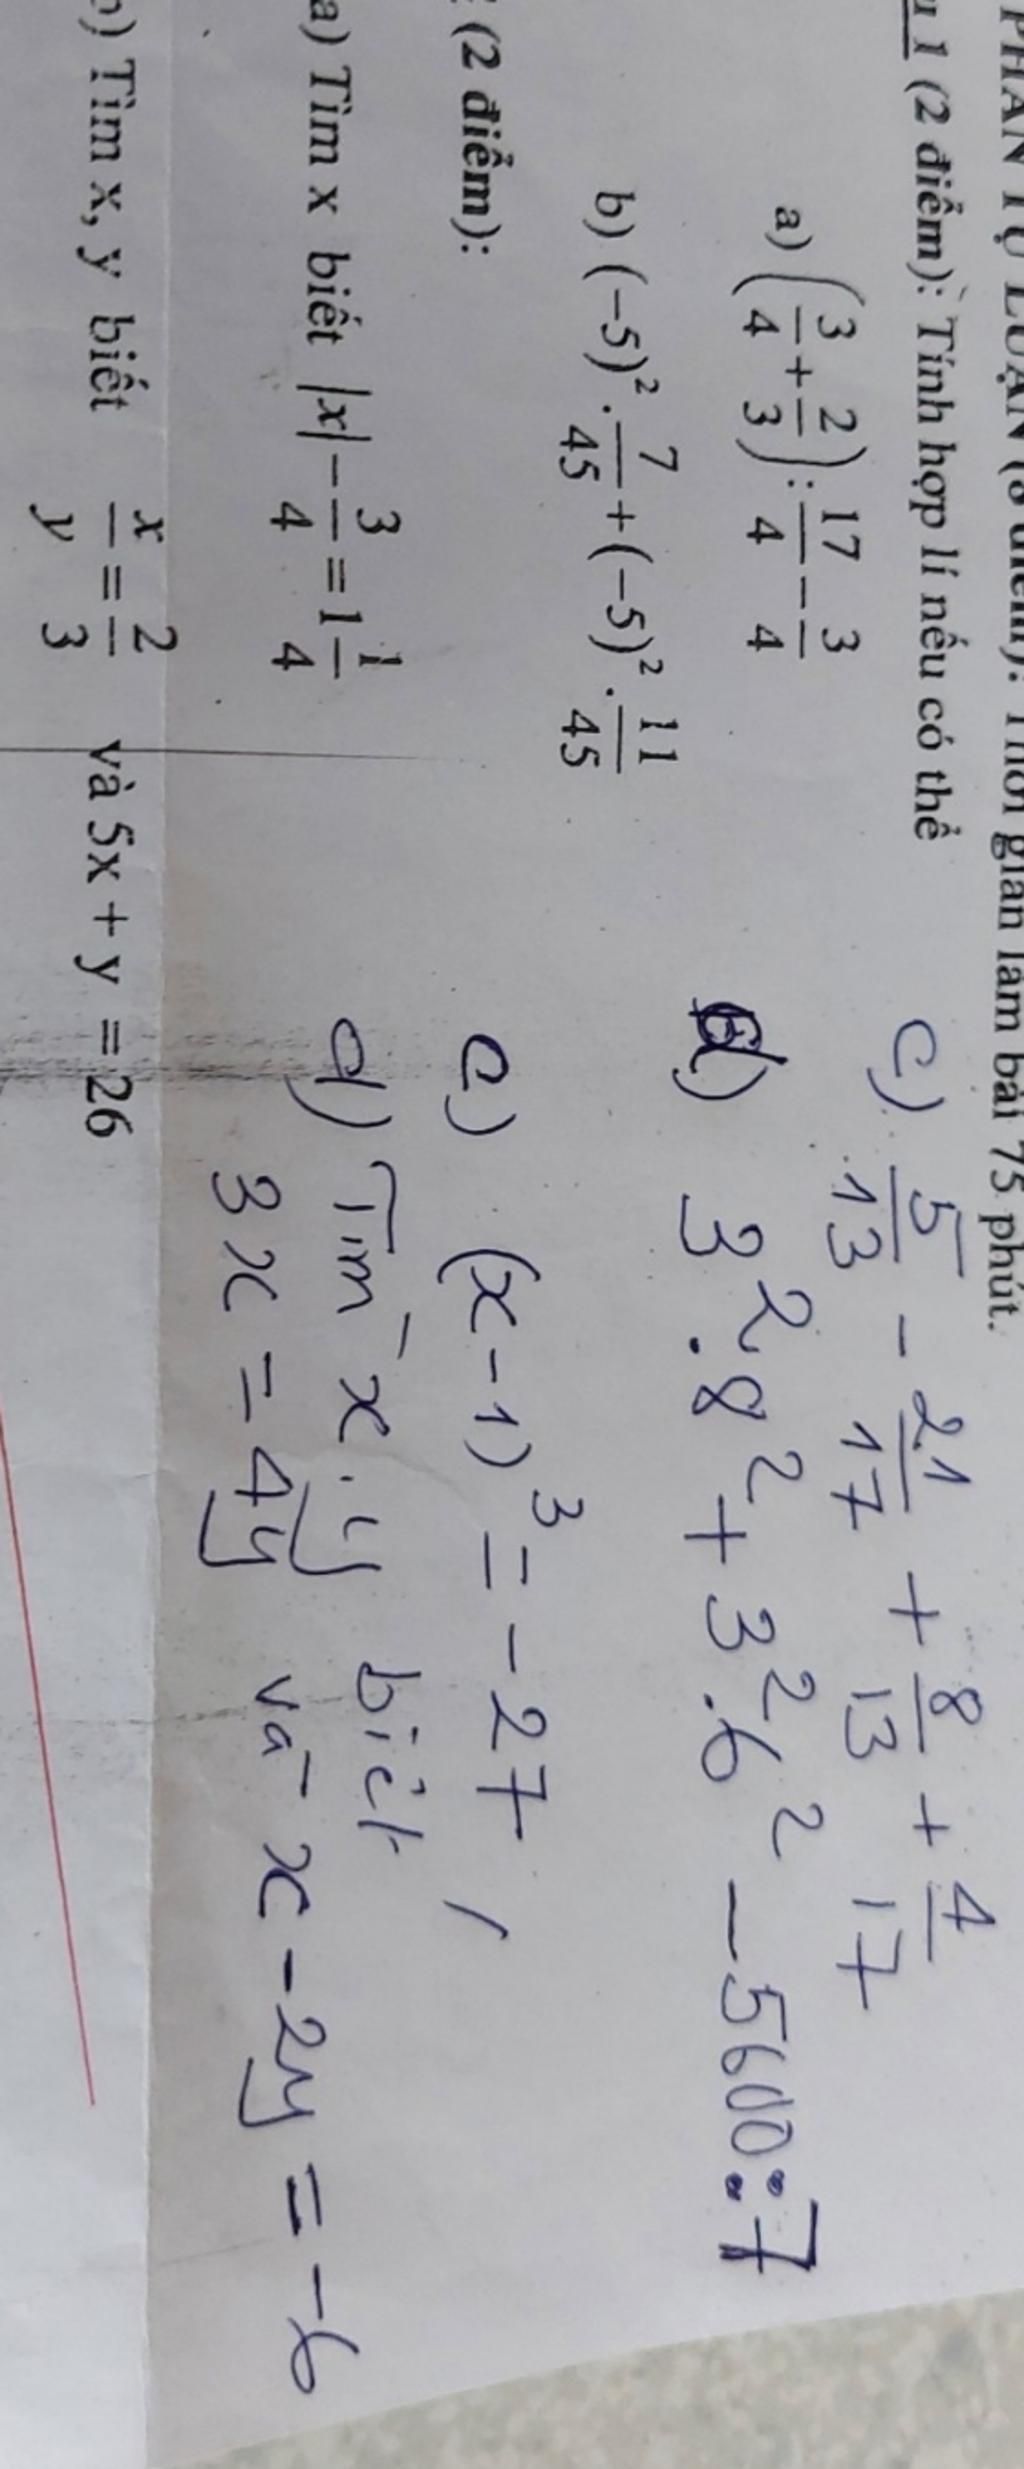 PHẦN TỰ LUẬN (8 điểm): Thời gian làm bài 75 phút.
1 (2 điểm): Tính hợp lí nếu có thể
a) (3/4 + 2/3) : 17/4 - 3/4
c) 5/13 - 21/17 + 8/13 + 4/17
b) (-5)² . 7/45 + (-5)² . 11/45
d) 3² . 8² + 3² . 6² - 5600 : 7
(2 điểm):
c) (x - 1)³ = -27
a) Tìm x biết |x| - 3/4 = 1 1/4
d) Tìm x, y biết
3x = 4y và x - 2y = -6
) Tìm x, y biết x/y = 2/3 và 5x + y = 26